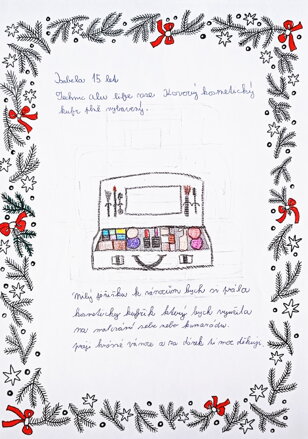 Izabela 15 let
Technic alu large rose Kovový kosmetický
kufr plně vybavený.
Milý ježíšku k vánocům bych si přála
kosmetický kufřík který bych využila
na malování sebe nebo kamarádů.
přeji krásné vánoce a za dárek ti moc děkuji.